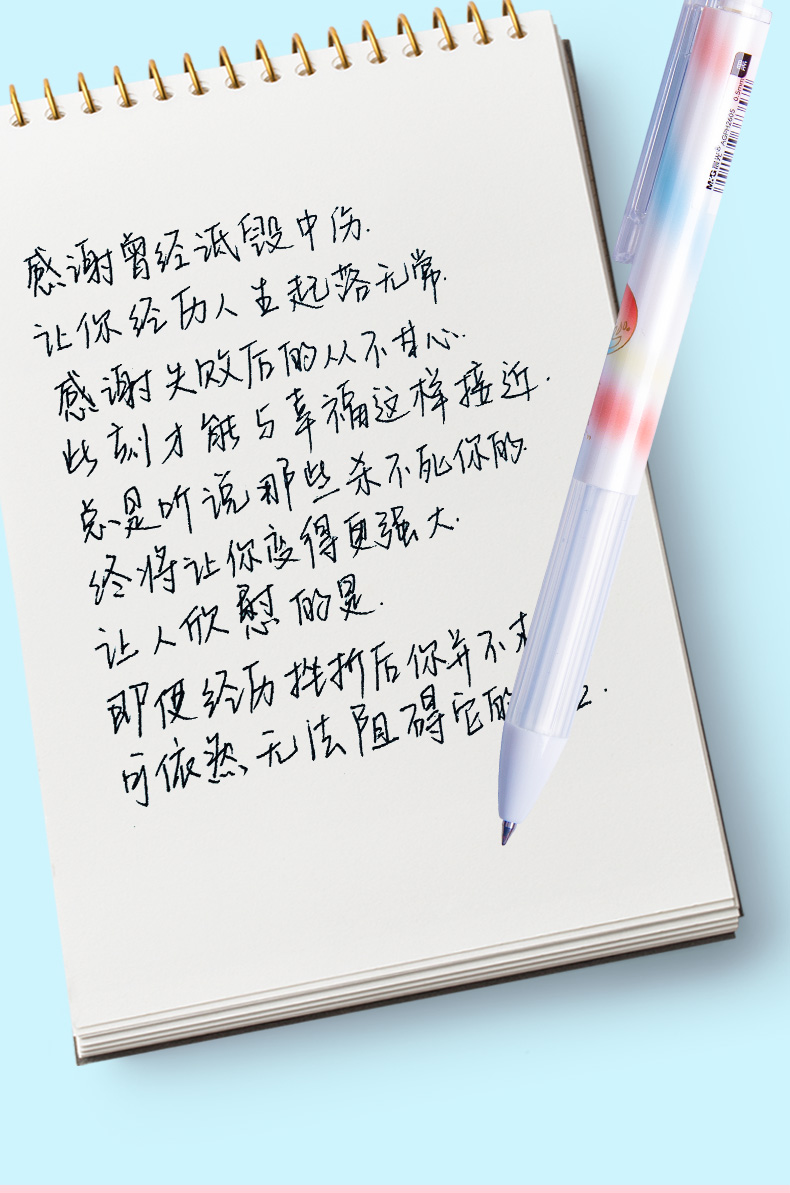 感谢曾经诋毁中伤.
让你经历人生起落无常.
感谢失败后的从不甘心.
此刻才能与幸福这样接近.
总是听说那些杀不死你的.
终将让你变得更强大.
让人欣慰的是.
即便经历挫折后你并不
可依然无法阻碍它的
黑
0.5mm
M&G晨光® AGPH2605